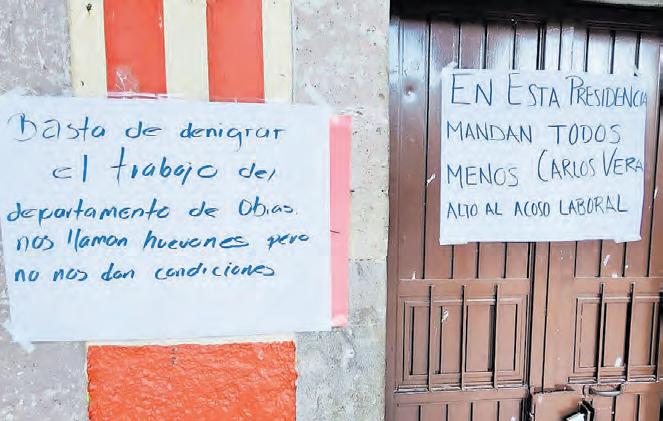 Basta de denigrar
el trabajo del
departamento de Obras.
nos llaman huevones pero
no nos dan condiciones
EN ESTA PRESIDENCIA
MANDAN TODOS
MENOS CARLOS VERA
ALTO AL ACOSO LABORAL